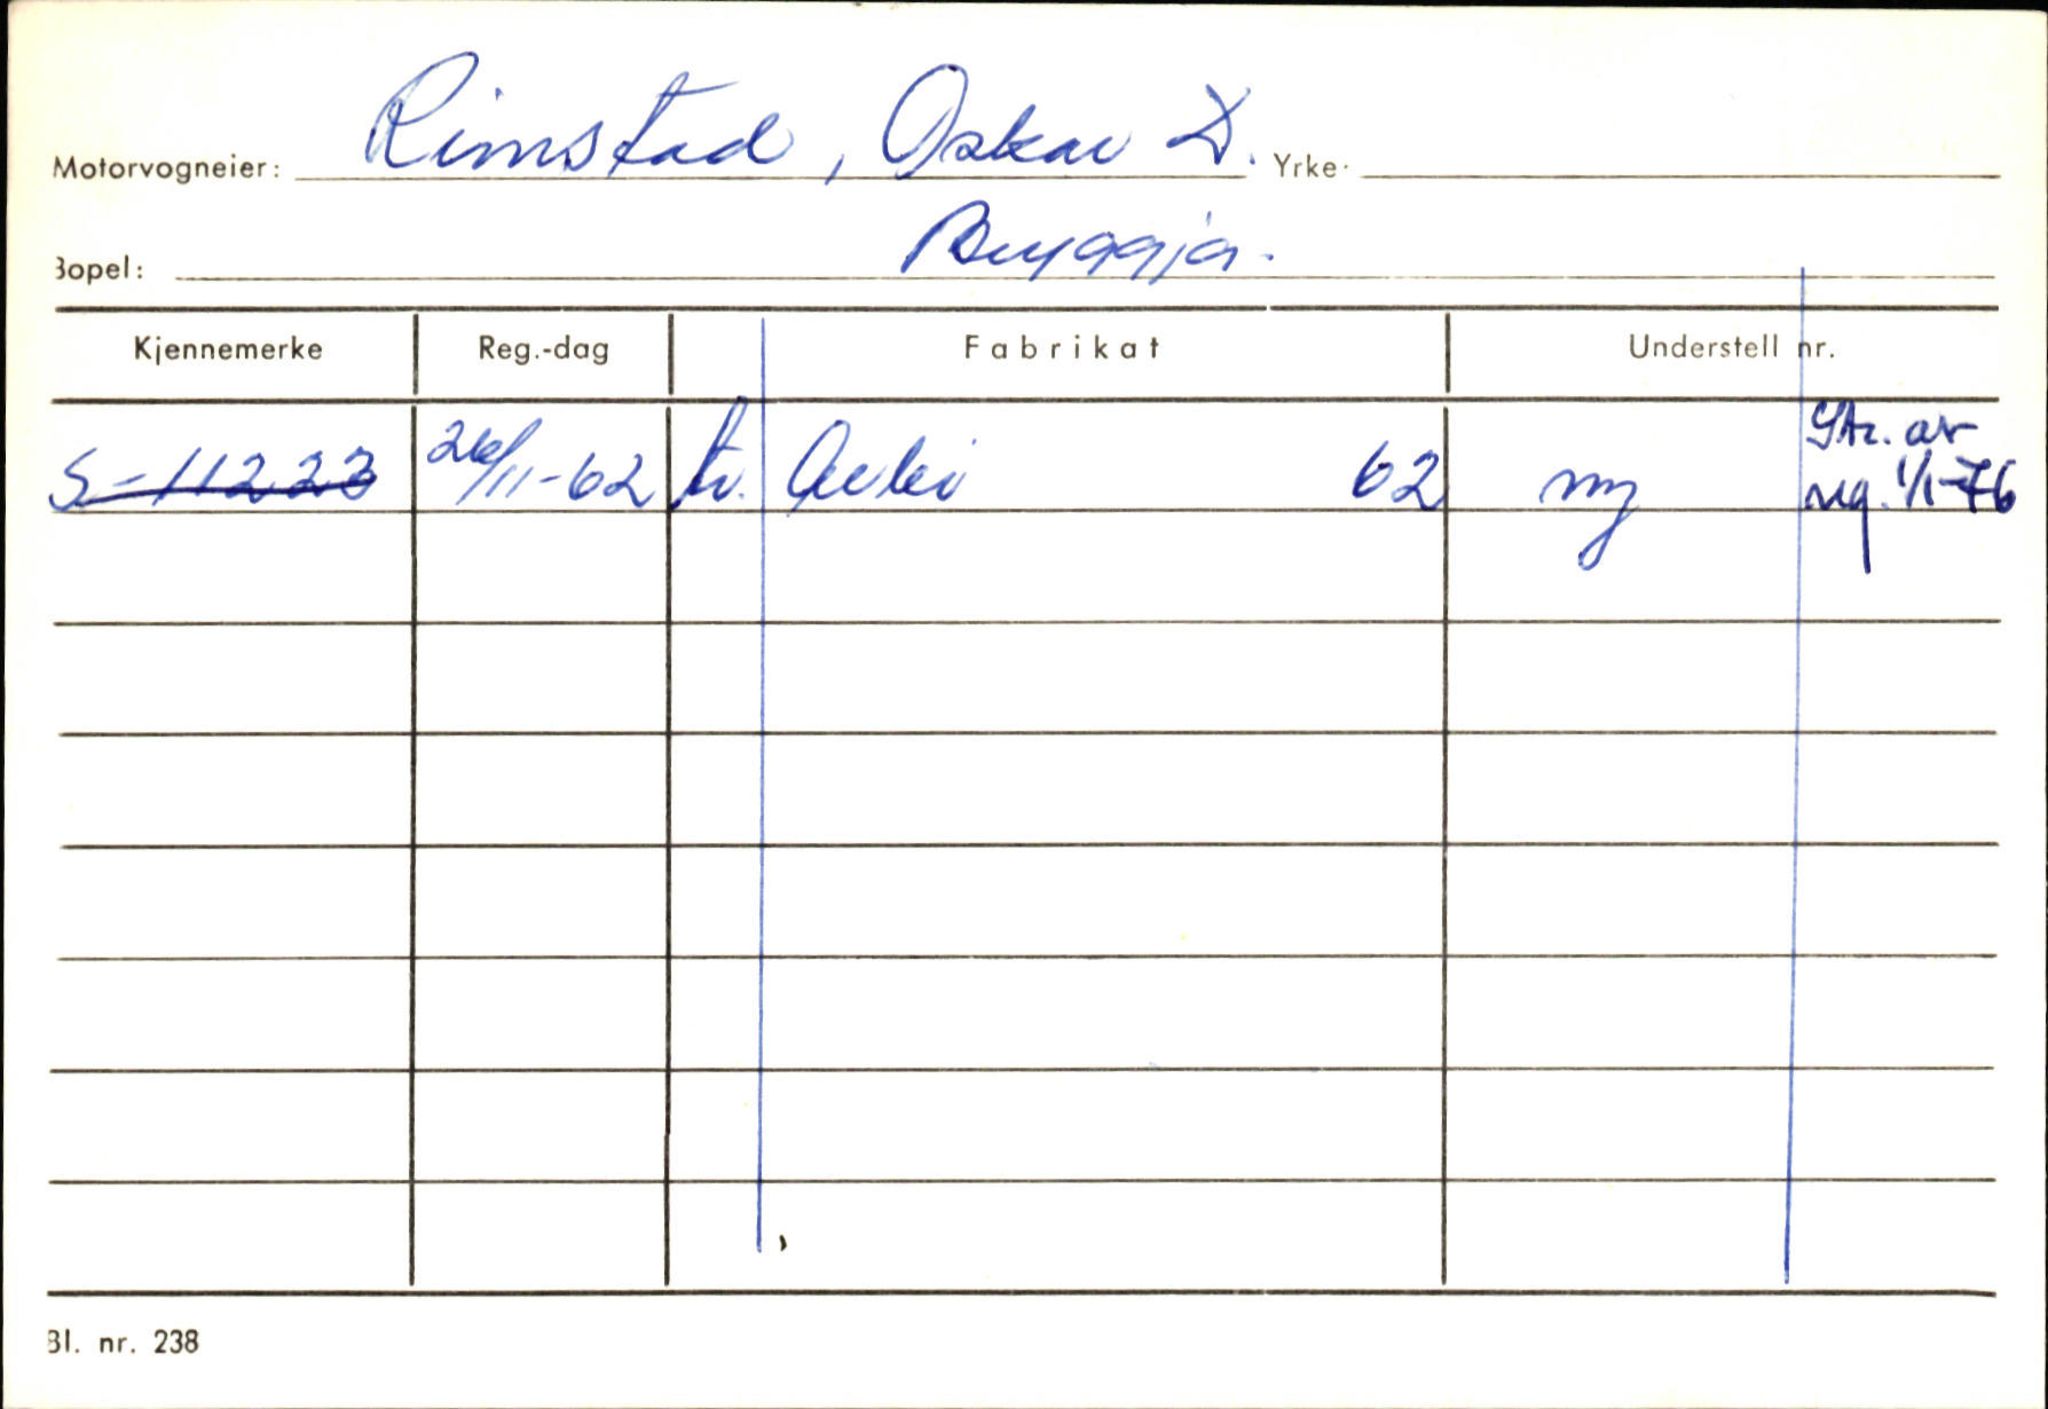 Motorvogneier: Rimstad, Oskar D. Yrke:
Bopel: Bryggja.
Kjennemerke Reg.-dag Fabrikat Understell nr.
S-11223 26/11-62 tr. 62 ny Str. av
reg. 1/1-76
Bl. nr. 238